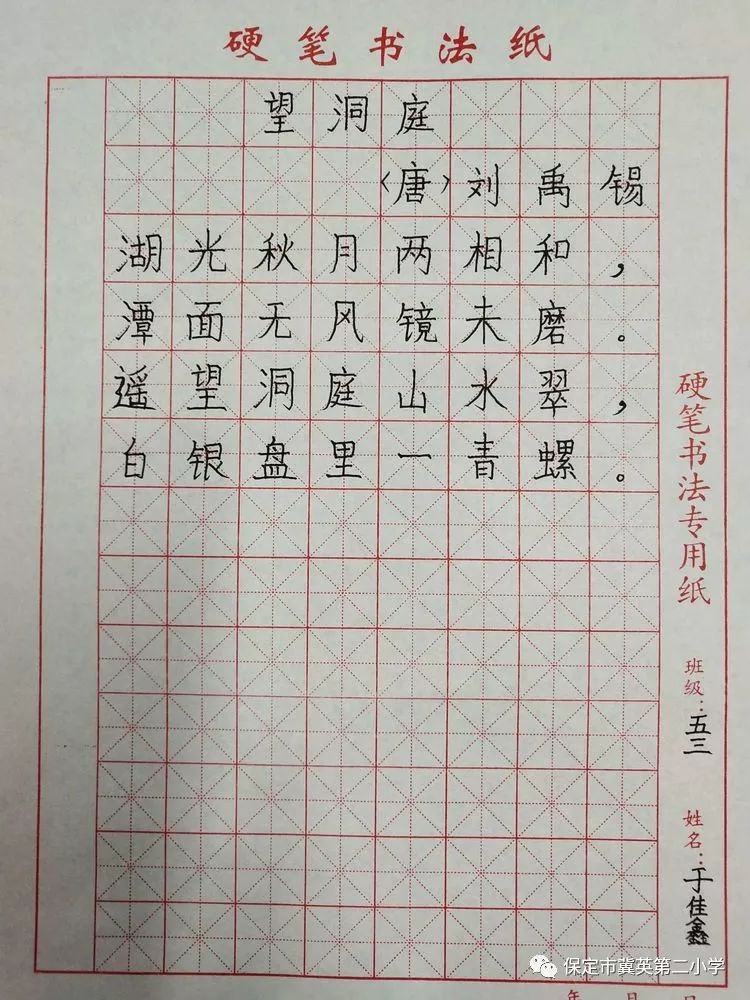 硬笔书法纸
望洞庭
〈唐〉刘禹锡
湖光秋月两相和，
潭面无风镜未磨。
遥望洞庭山水翠，
白银盘里一青螺。
硬笔书法专用纸
班级：五三
姓名：于佳鑫
保定市冀英第二小学
年 月 日